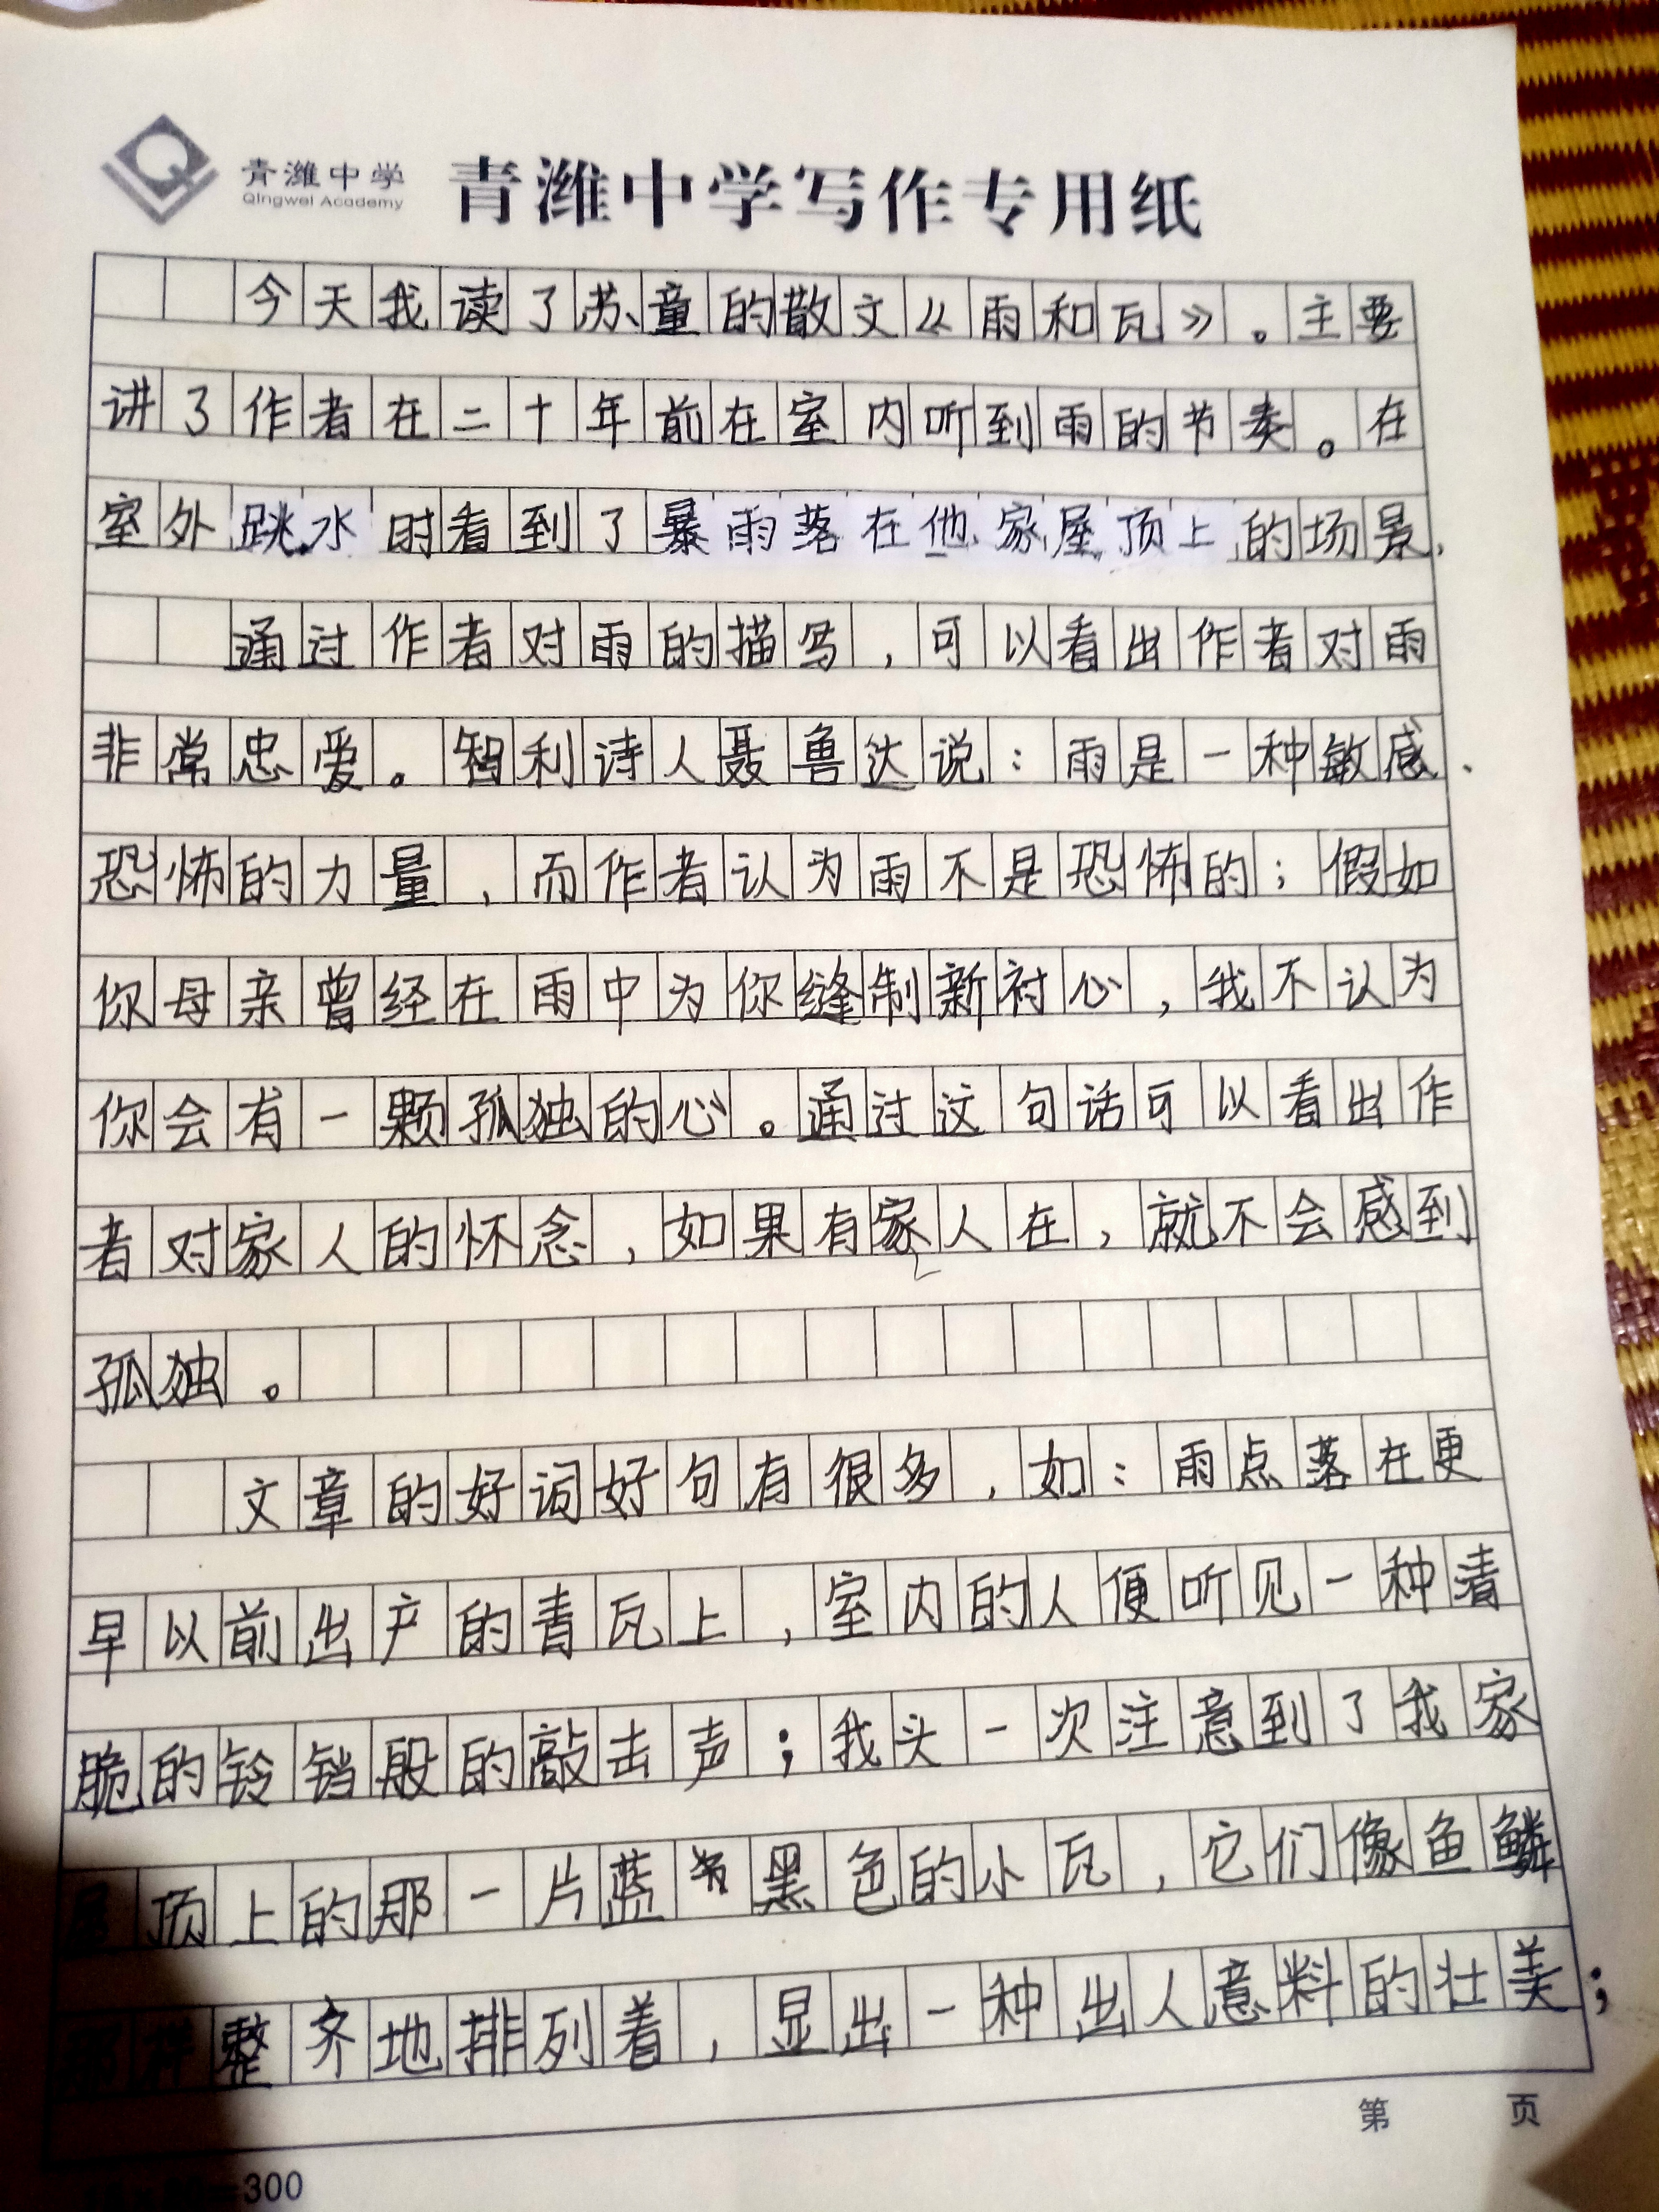 青潍中学
Qingwei Academy
青潍中学写作专用纸
今天我读了苏童的散文《雨和瓦》。主要
讲了作者在二十年前在室内听到雨的节奏。在
室外跳水时看到了暴雨落在他家屋顶上的场景.
通过作者对雨的描写,可以看出作者对雨
非常忠爱。智利诗人聂鲁达说:雨是一种敏感、
恐怖的力量,而作者认为雨不是恐怖的;假如
你母亲曾经在雨中为你缝制新衬心,我不认为
你会有一颗孤独的心。通过这句话可以看出作
者对家人的怀念,如果有家人在,就不会感到
孤独。
文章的好词好句有很多,如:雨点落在更
早以前出产的青瓦上,室内的人便听见一种清
脆的铃铛般的敲击声;我头一次注意到了我家
屋顶上的那一片蓝黑色的小瓦,它们像鱼鳞
那样整齐地排列着,显出一种出人意料的壮美;
第 页
=300